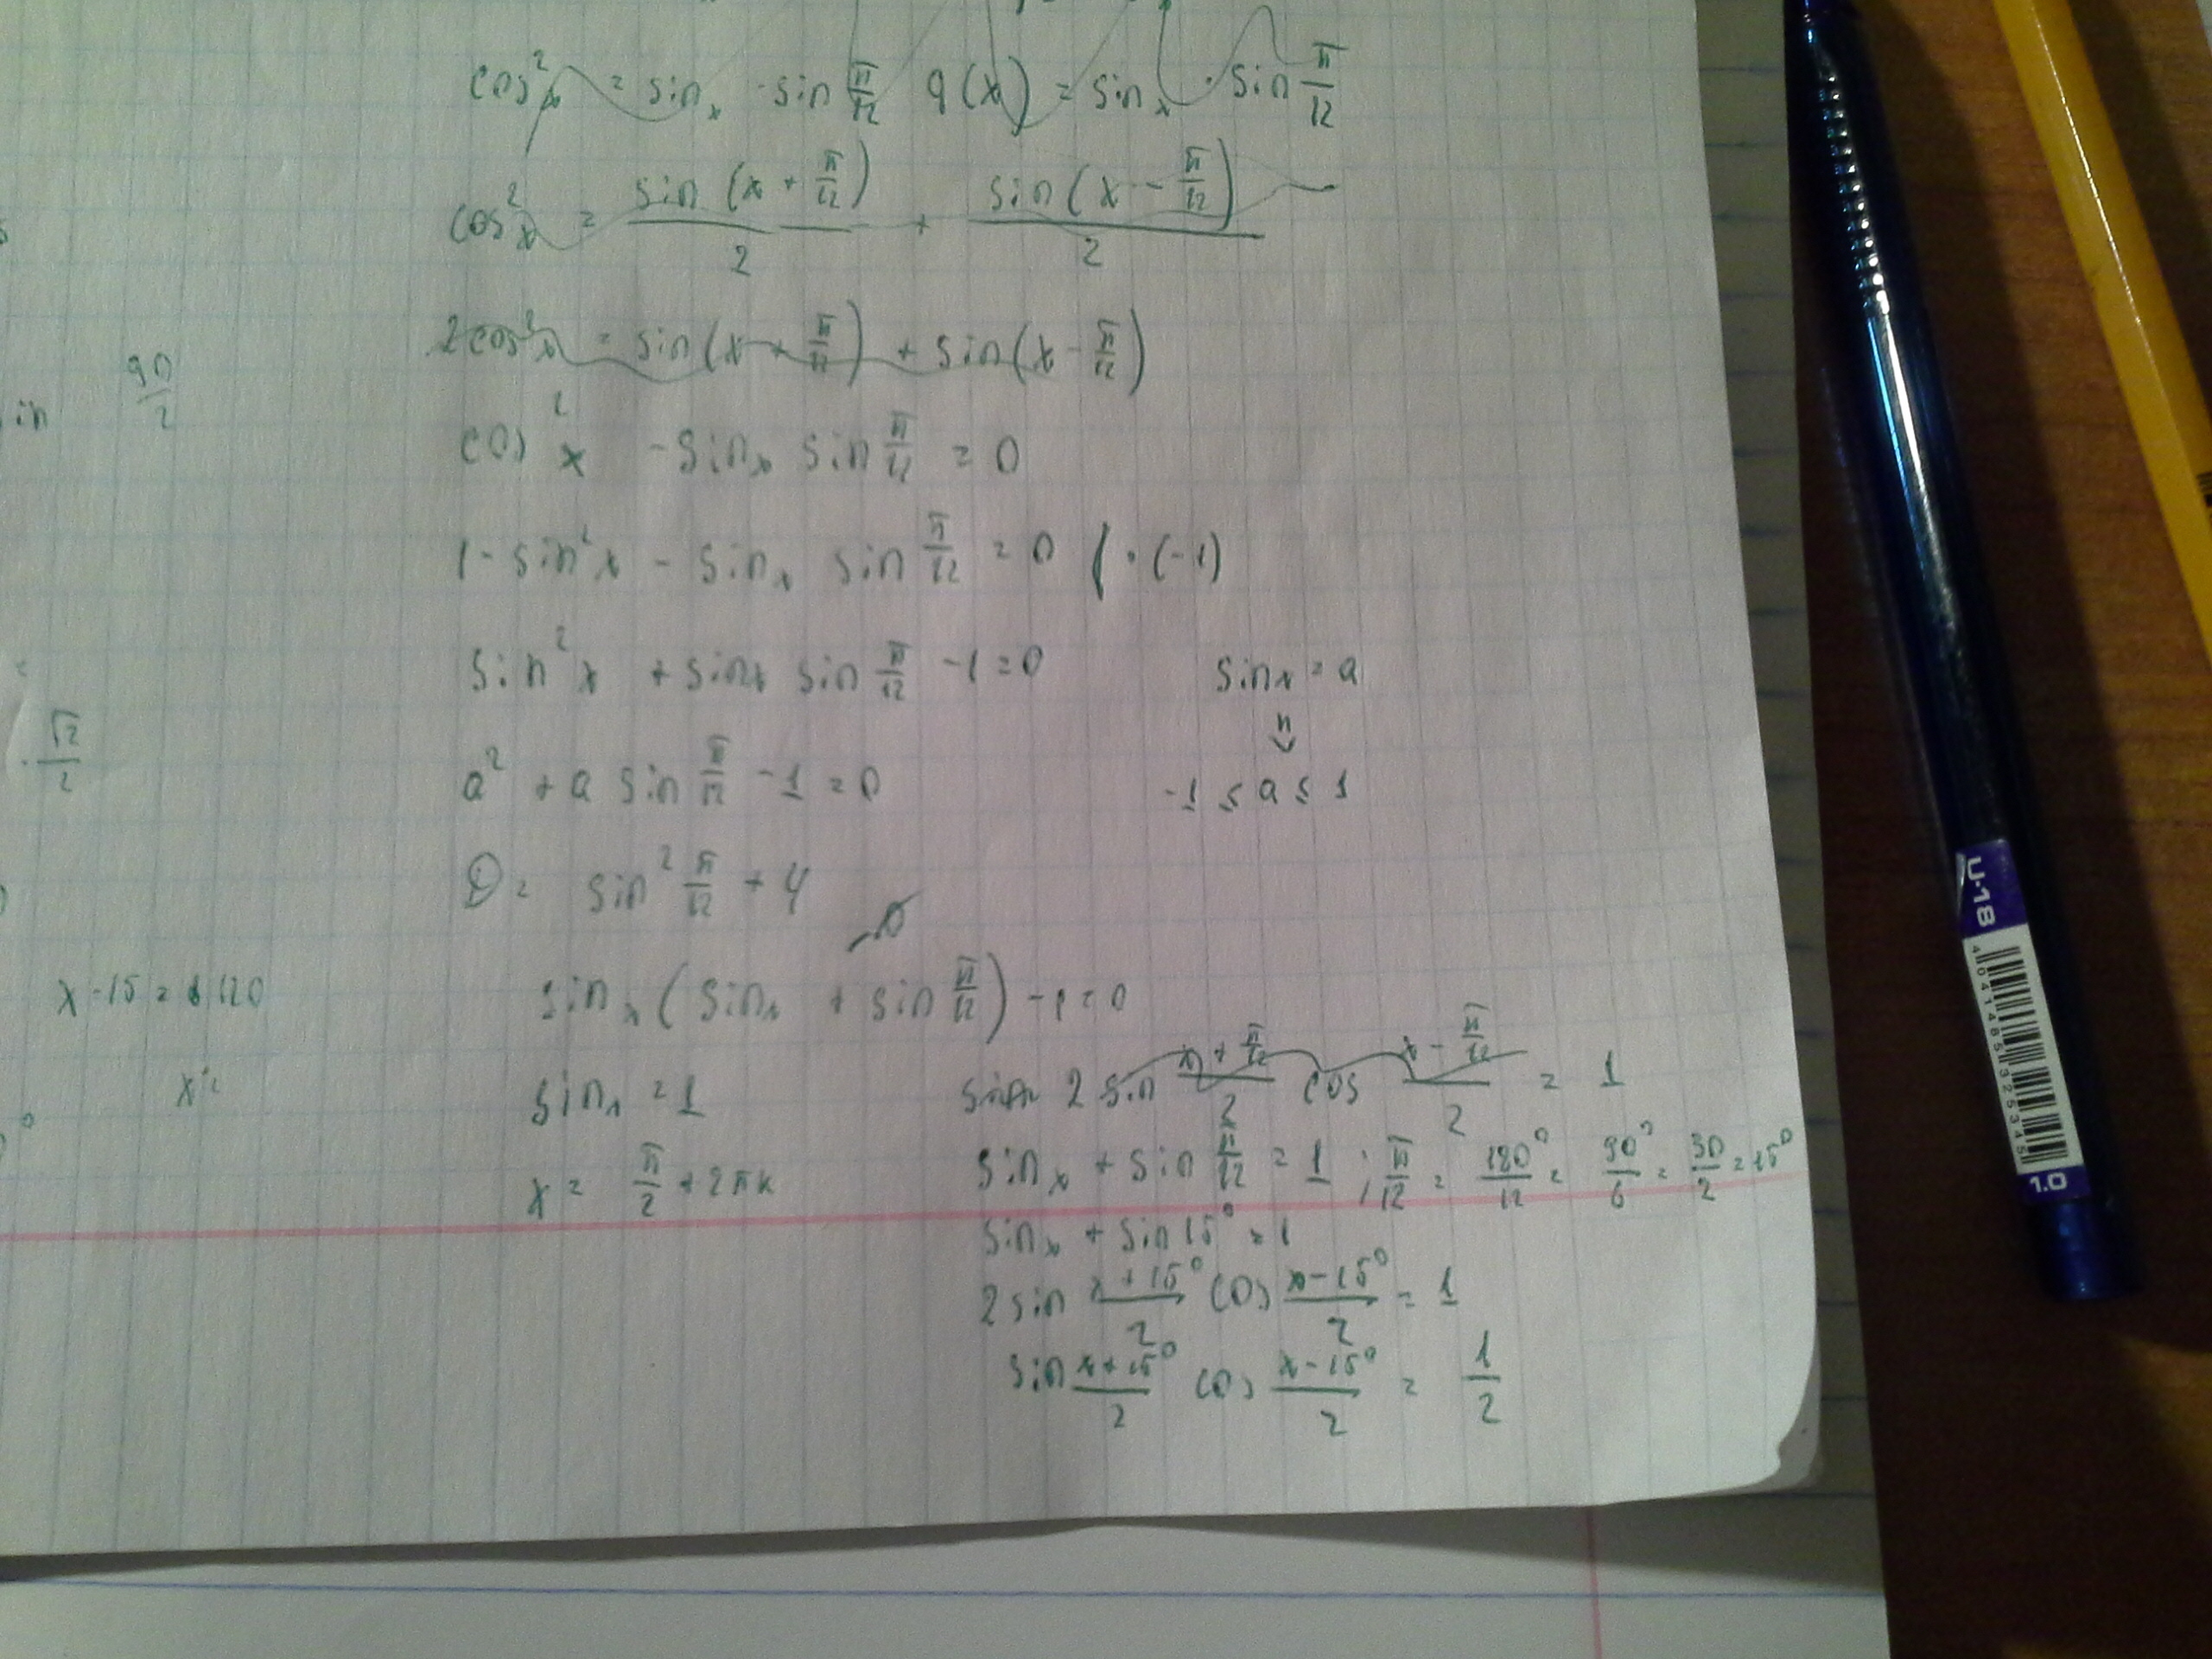 cos²x = sin x · sin π/12 q(x) = sin x · sin π/12
cos²x = sin(x + π/12)/2 + sin(x - π/12)/2
2cos²x = sin(x + π/12) + sin(x - π/12)
in 90/2
cos²x - sin x sin π/12 = 0
1 - sin²x - sin x sin π/12 = 0 | · (-1)
sin²x + sin x sin π/12 - 1 = 0 sin x = a
· √2/2
a² + a sin π/12 - 1 = 0 -1 ≤ a ≤ 1
D = sin² π/12 + 4
x - 15 = 120
sin x (sin x + sin π/12) - 1 = 0
x =
sin x = 1 2 sin (x + π/12)/2 cos (x - π/12)/2 = 1
x = π/2 + 2πk sin x + sin π/12 = 1 ; π/12 = 180°/12 = 90°/6 = 30/2 = 15°
sin x + sin 15° = 1
2 sin (x + 15°)/2 cos (x - 15°)/2 = 1
sin (x + 15°)/2 cos (x - 15°)/2 = 1/2
U-18
4041485325345
1.0